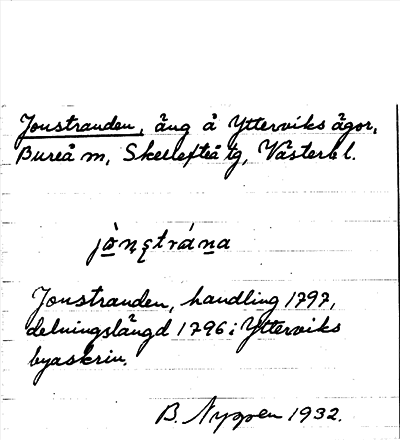 Jonstranden, äng å Ytterviks ägor,
Bureå m, Skellefteå tg, Västerb l.
jònstrána
Jonstranden, handling 1797,
delningslängd 1796 i Ytterviks
byaskrin.
B. Nyggen 1932.